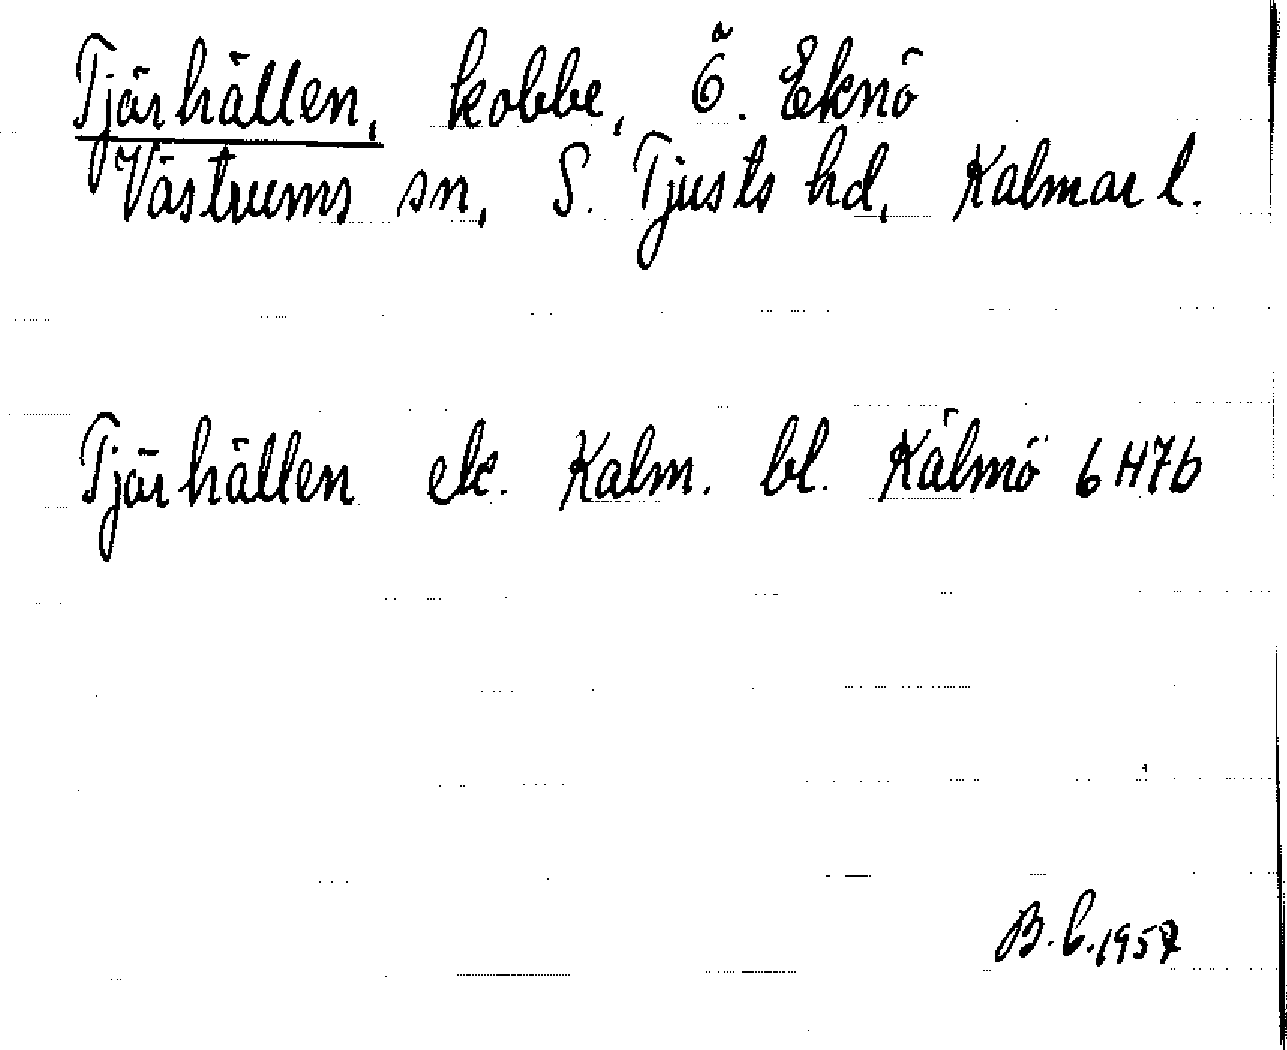 Tjärhällen, kobbe, Ö. Eknö
Västrums sn, S. Tjusts hd, Kalmar l.
Tjärhällen ek. Kalm. bl. Kälmö 6H7b
B. L. 1957